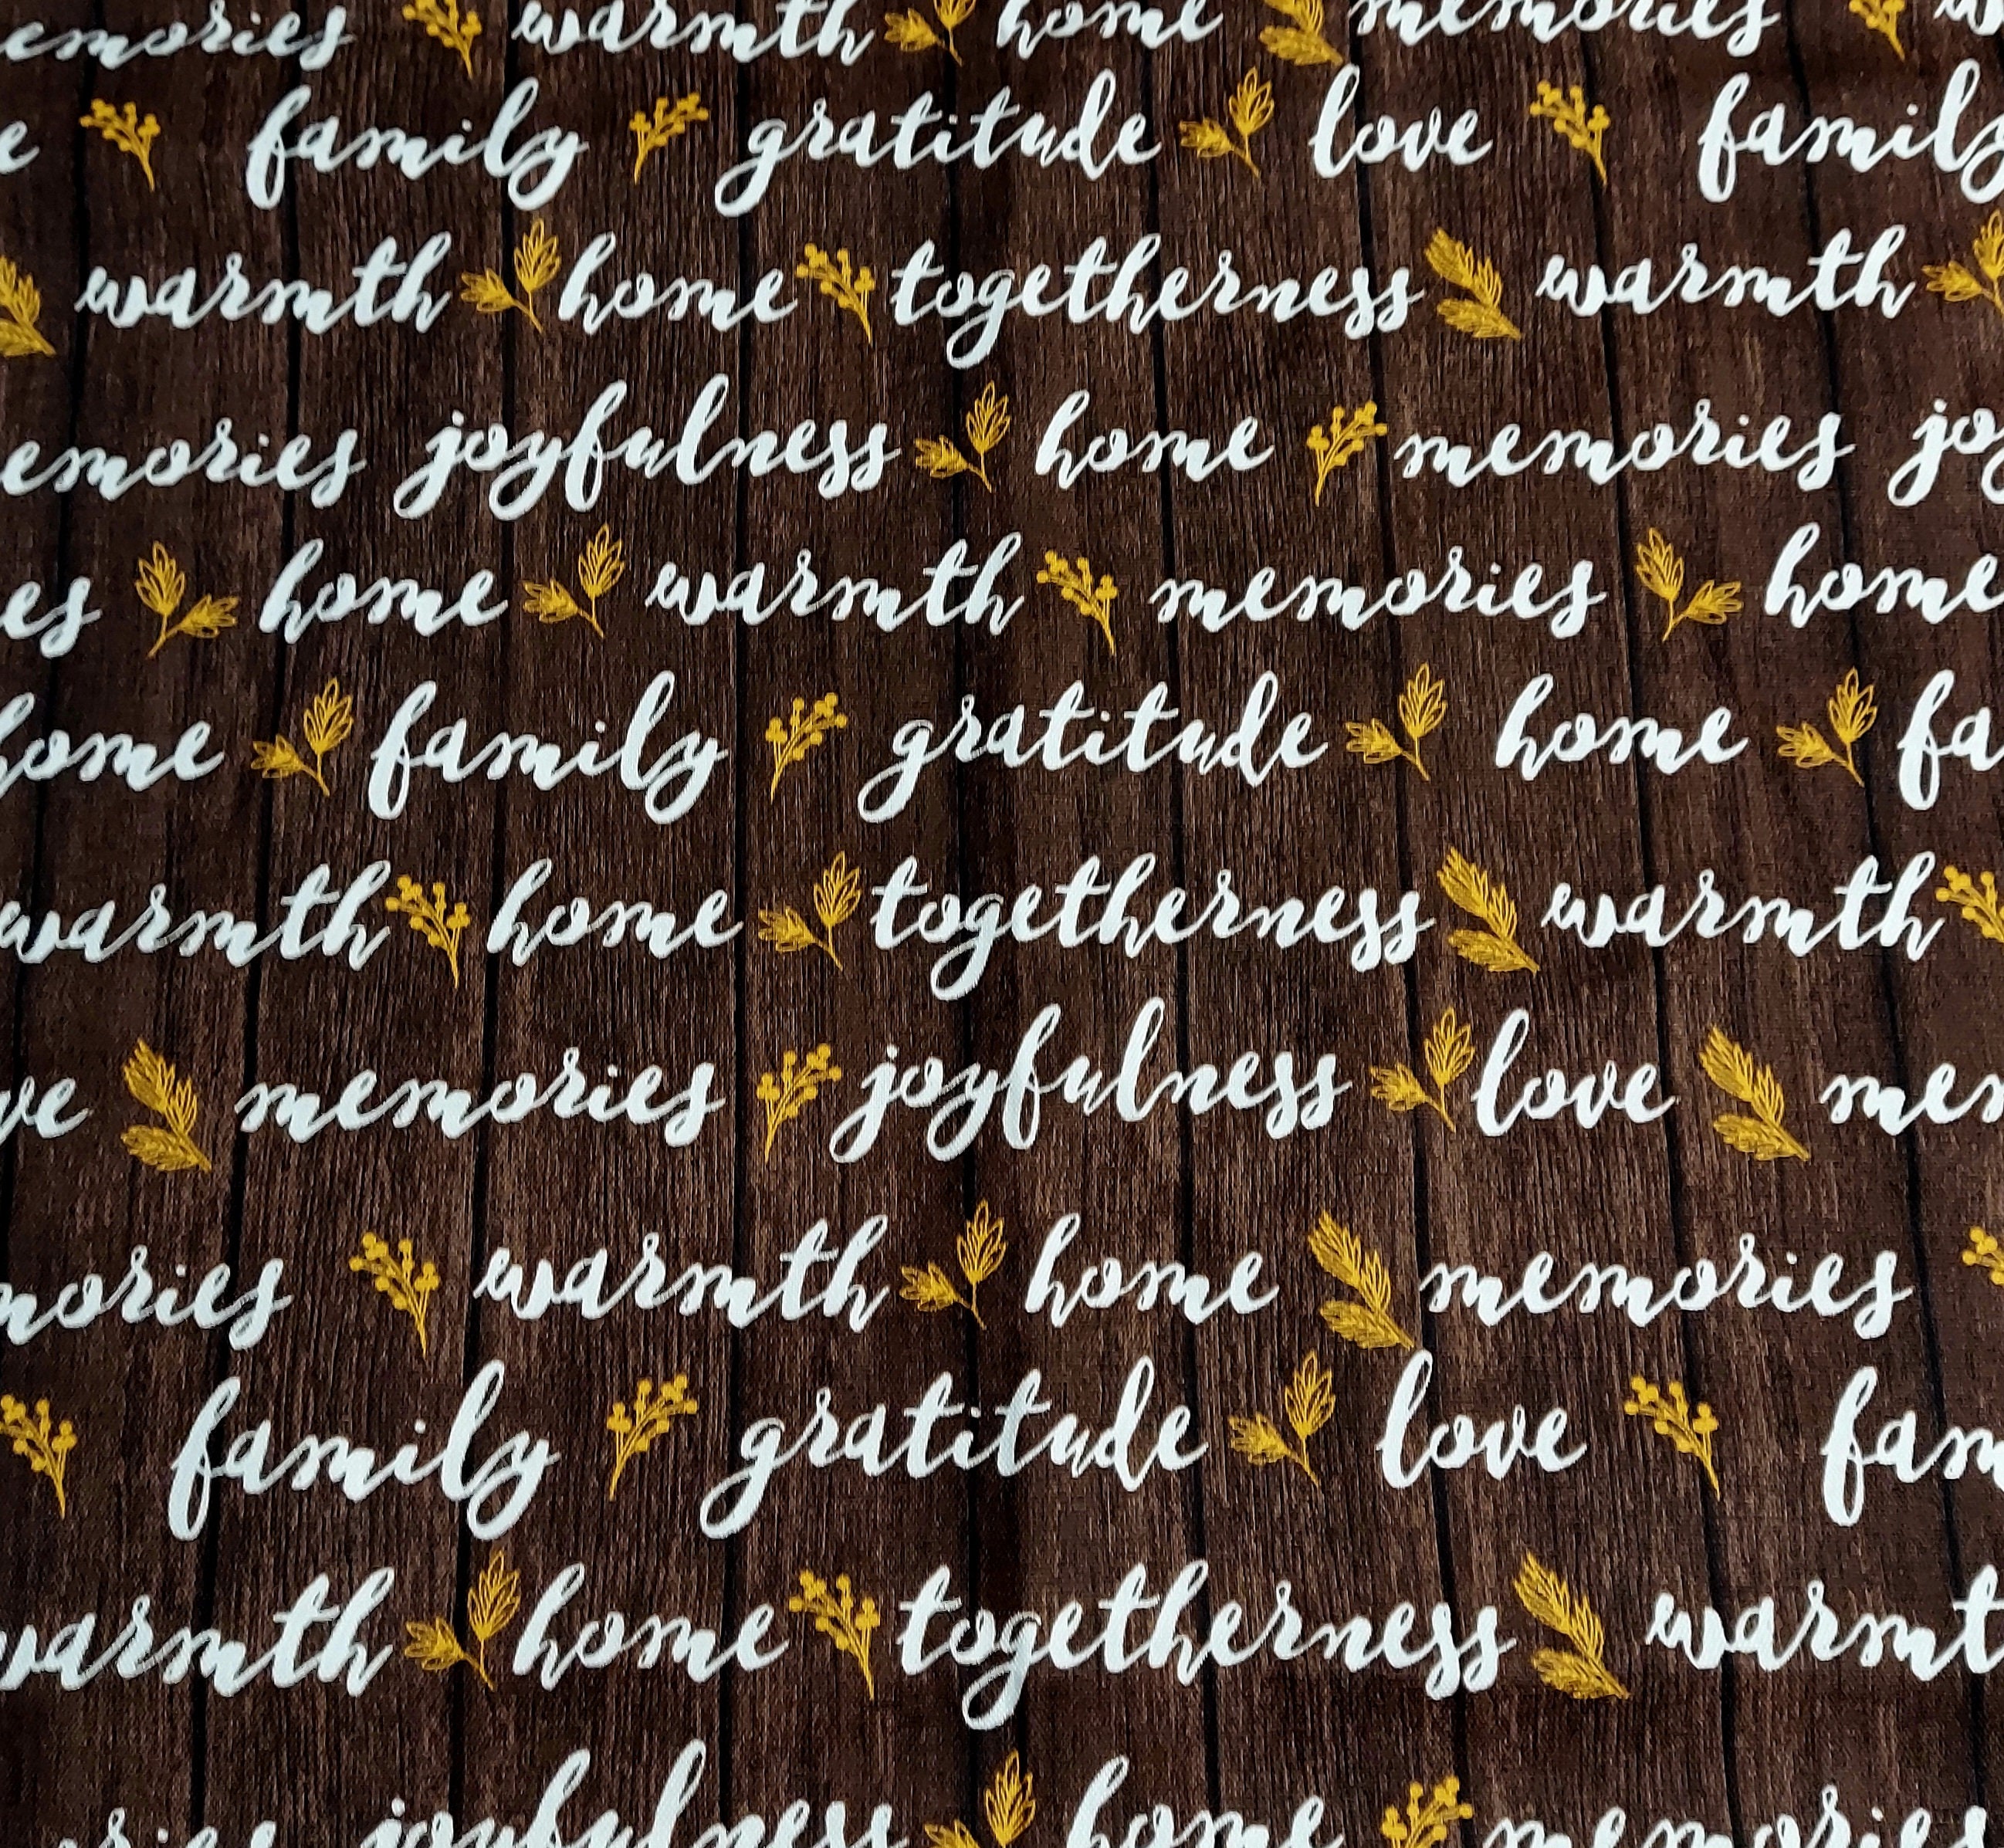 emories warmth home memories
e family gratitude love family
warmth home togetherness warmth
emories joyfulness home memories joy
es home warmth memories home
home family gratitude home fa
warmth home togetherness warmth
ve memories joyfulness love mem
mories warmth home memories
family gratitude love fam
warmth home togetherness warmt
ories joyfulness home memories